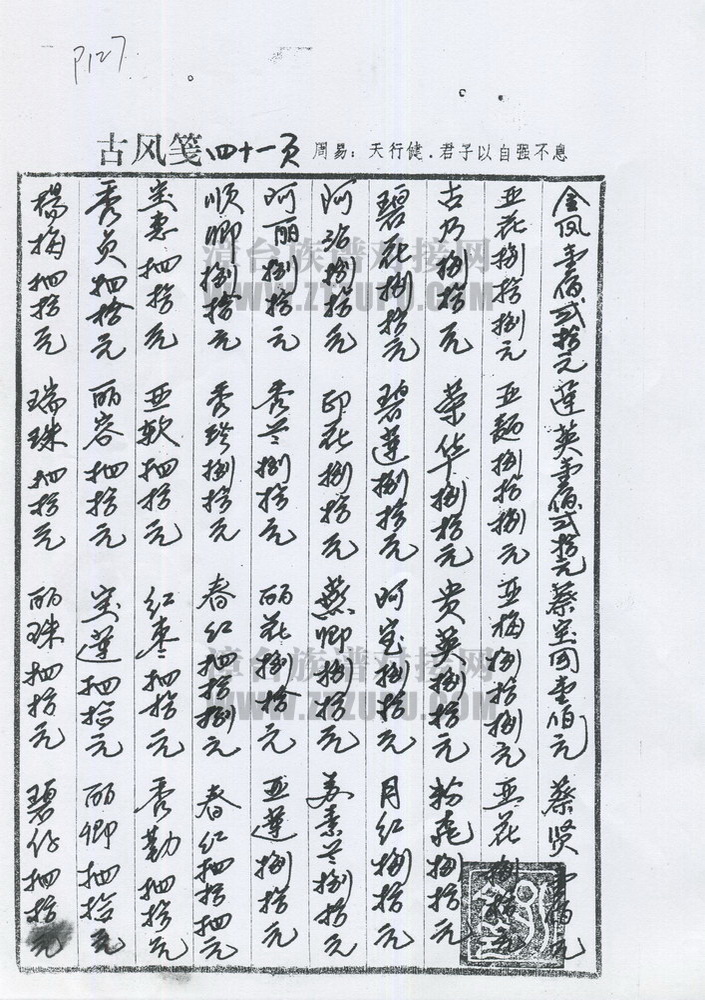 P127
古风笺四十一页 周易：天行健．君子以自强不息
金凤壹佰弍拾元 莲英壹佰弍拾元 蔡宝 壹佰元 蔡贤壹佰元
亚花捌拾捌元 亚 捌拾捌元 亚梅捌拾捌元 亚花捌拾元
古乃捌拾元 荣华捌拾元 贵英捌拾元 捌拾元
碧花捌拾元 碧莲捌拾元 阿宝捌拾元 月红捌拾元
阿 捌拾元 印花捌拾元 燕卿捌拾元 素兰捌拾元
阿丽捌拾元 秀兰捌拾元 丽花捌拾元 亚莲捌拾元
顺卿捌拾元 秀玲捌拾元 春红肆拾捌元 春红肆拾肆元
宝惠肆拾元 亚软肆拾元 红枣肆拾元 秀勤肆拾元
秀贞肆拾元 丽容肆拾元 宝莲肆拾元 丽卿肆拾元
杨梅肆拾元 瑞珠肆拾元 丽珠肆拾元 碧仔肆拾元
漳台族谱对接网
WWW.ZTZUPU.COM
漳台族谱对接网
WWW.ZTZUPU.COM